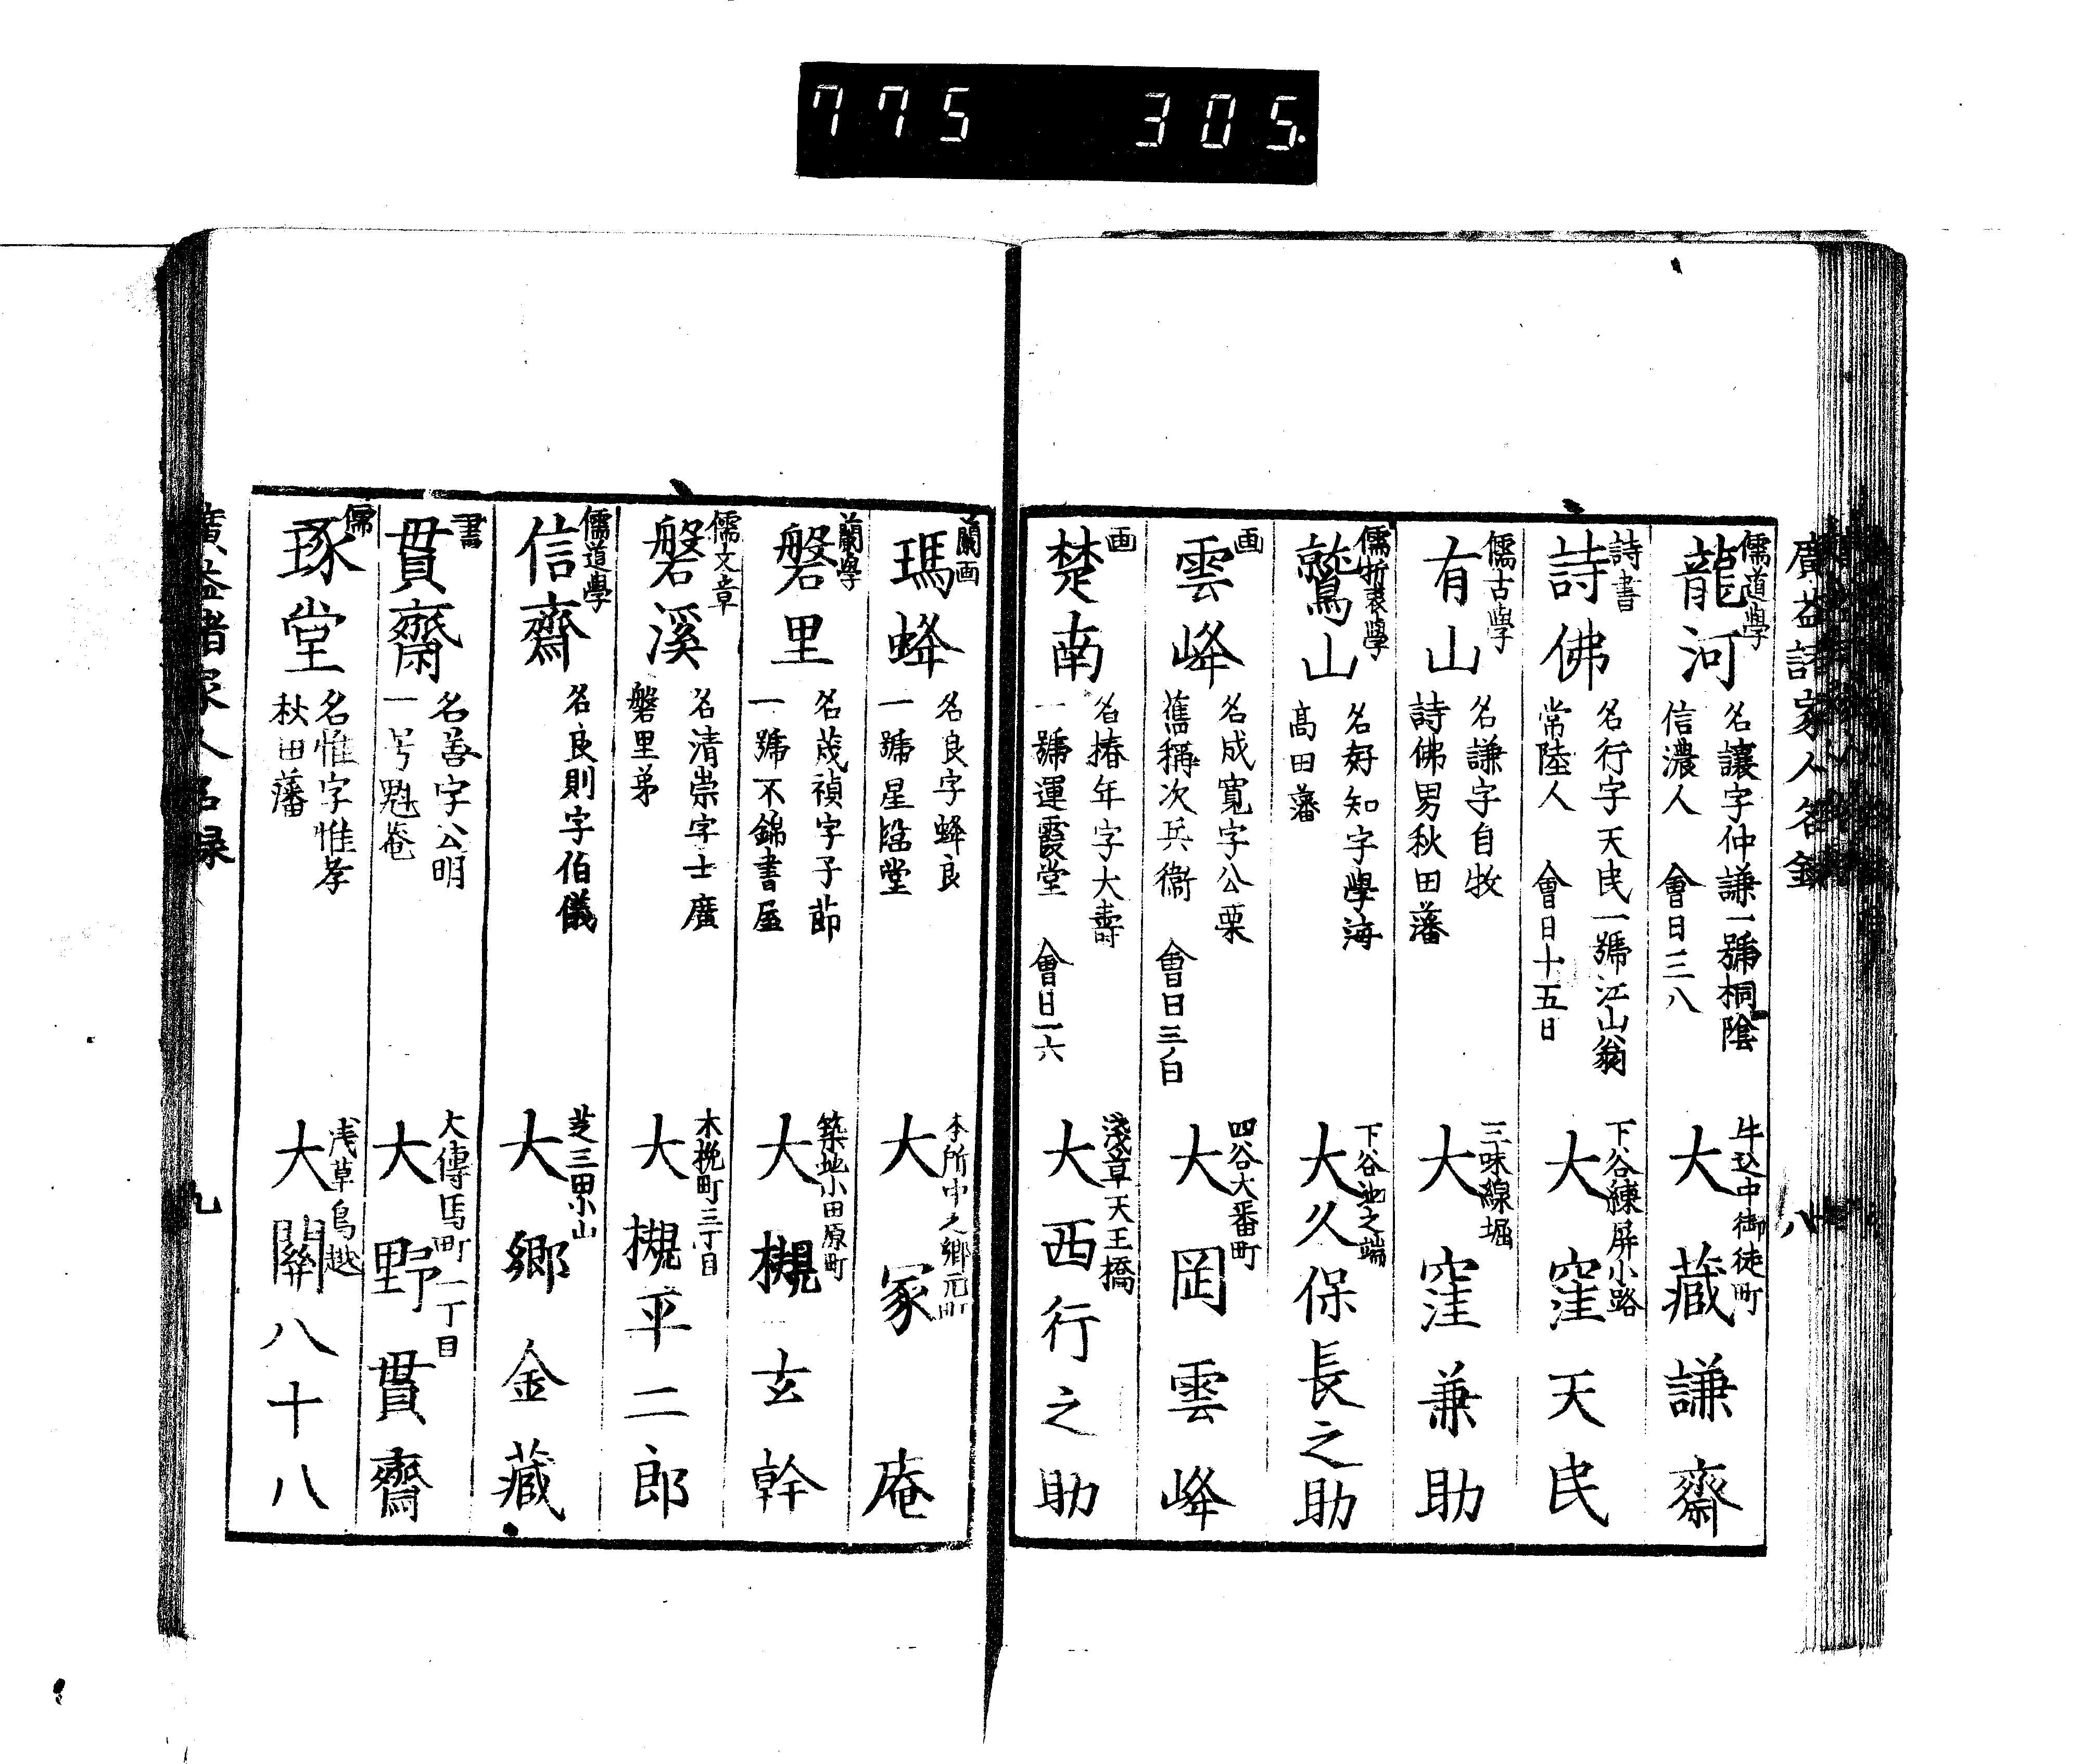 775 305.
廣益諸家人名録
八
儒道學
龍河
名讓字仲謙一號桐陰
信濃人 會日三八
牛込中御徒町
大藏謙齋
詩書
詩佛
名行字天民一號江山翁
常陸人 會日十五日
下谷練屏小路
大窪天民
儒古學
有山
名謙字自牧
詩佛男秋田藩
三味線堀
大窪兼助
儒折衷學
鷲山
名好知字學海
高田藩
下谷池之端
大久保長之助
画
雲峰
名成寬字公栗
舊稱次兵衞 會日三ノ日
四谷大番町
大岡雲峰
画
楚南
名椿年字大壽
一號運霞堂 會日一六
淺草天王橋
大西行之助
蘭画
瑪蜂
名良字蜂良
一號星陷堂
本所中之郷元町
大冢庵
蘭學
磐里
名茂禎字子節
一號不錦書屋
築地小田原町
大槻玄幹
儒文章
磐溪
名清崇字士廣
磐里弟
木挽町三丁目
大槻平二郎
儒道學
信齋
名良則字伯儀
芝三田小山
大郷金藏
書
貫齋
名善字公明
一号魁菴
大傳馬町一丁目
大野貫齋
儒
琢堂
名惟字惟孝
秋田藩
浅草鳥越
大關八十八
廣益諸家人名録
九